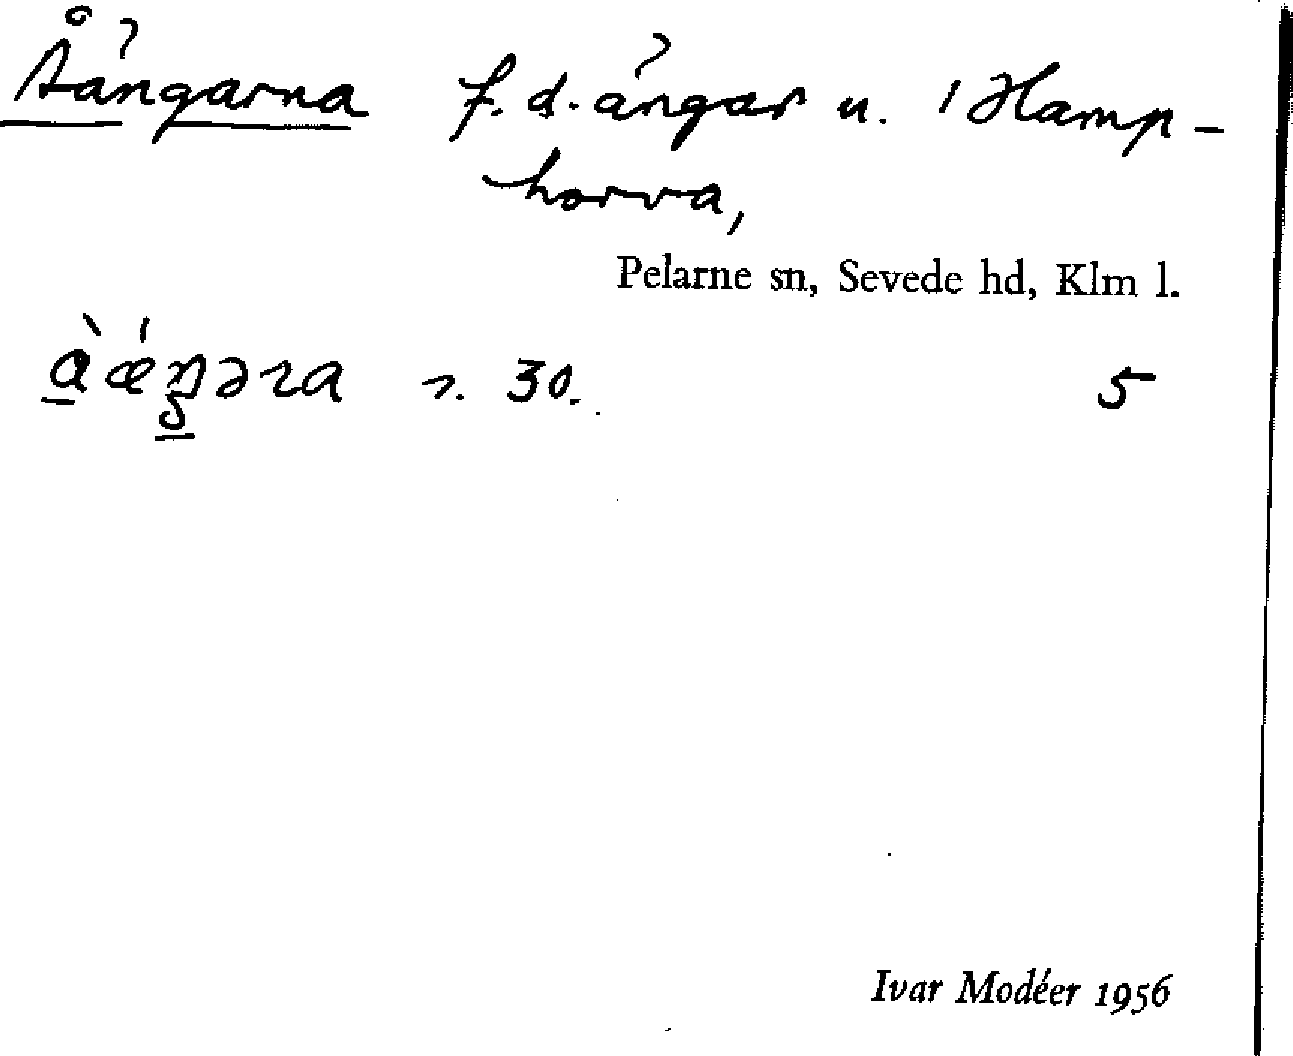 Åängarna f.d. ängar u. 1 Hamp-
horva,
Pelarne sn, Sevede hd, Klm l.
30. 5
Ivar Modéer 1956